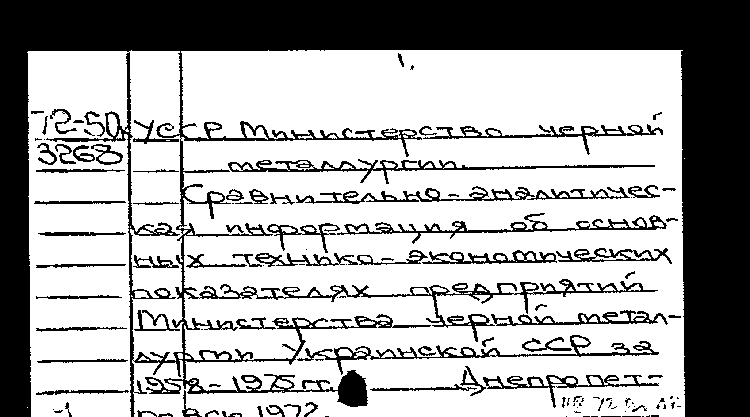 1.
72-50к УССР Министерство черной
3268 металлургии.
Сравнительно-аналитичес-
кая информация об основ-
ных технико-экономических
показателях предприятий
Министерства черной метал-
лургии Украинской ССР за
1958-1975 гг. Днепропет-
1972.